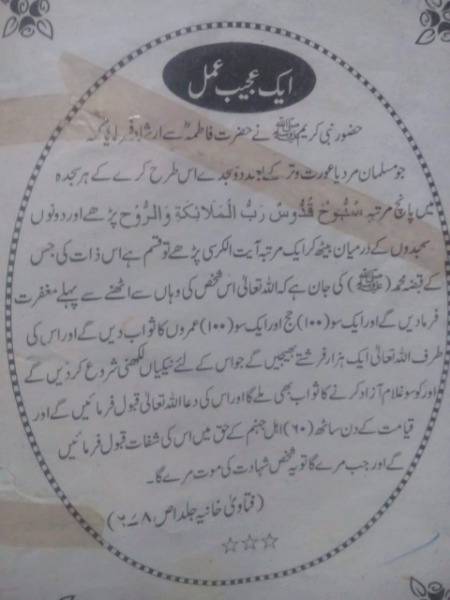 ایک عجیب عمل
حضور نبی کریم ﷺ نے حضرت فاطمہؓ سے ارشاد فرمایا کہ
جو مسلمان مرد یا عورت وتر کے بعد دو سجدے اس طرح کرے کے ہر سجدہ
میں پانچ مرتبہ سُبُّوحٌ قُدُّوسٌ رَبُّ الْمَلَائِكَةِ وَالرُّوْح پڑھے اور دونوں
سجدوں کے درمیان بیٹھ کر ایک مرتبہ آیت الکرسی پڑھے تو قسم ہے اس ذات کی جس
کے قبضہ محمد (ﷺ) کی جان ہے کہ اللہ تعالیٰ اس شخص کی وہاں سے اٹھنے سے پہلے مغفرت
فرمادیں گے اور ایک سو (۱۰۰) حج اور ایک سو (۱۰۰) عمروں کا ثواب دیں گے اور اس کی
طرف اللہ تعالیٰ ایک ہزار فرشتے بھیجیں گے جو اس کے لئے نیکیاں لکھنی شروع کر دیں گے
اور کو سو غلام آزاد کرنے کا ثواب بھی ملے گا اور اس کی دعا اللہ تعالیٰ قبول فرمائیں گے اور
قیامت کے دن ساٹھ (۶۰) اہل جہنم کے حق میں اس کی شفات قبول فرمائیں
گے اور جب مرے گا تو یہ شخص شہادت کی موت مرے گا۔
(فتاویٰ خانیہ جلد ا ص ۶۷۸)
☆☆☆